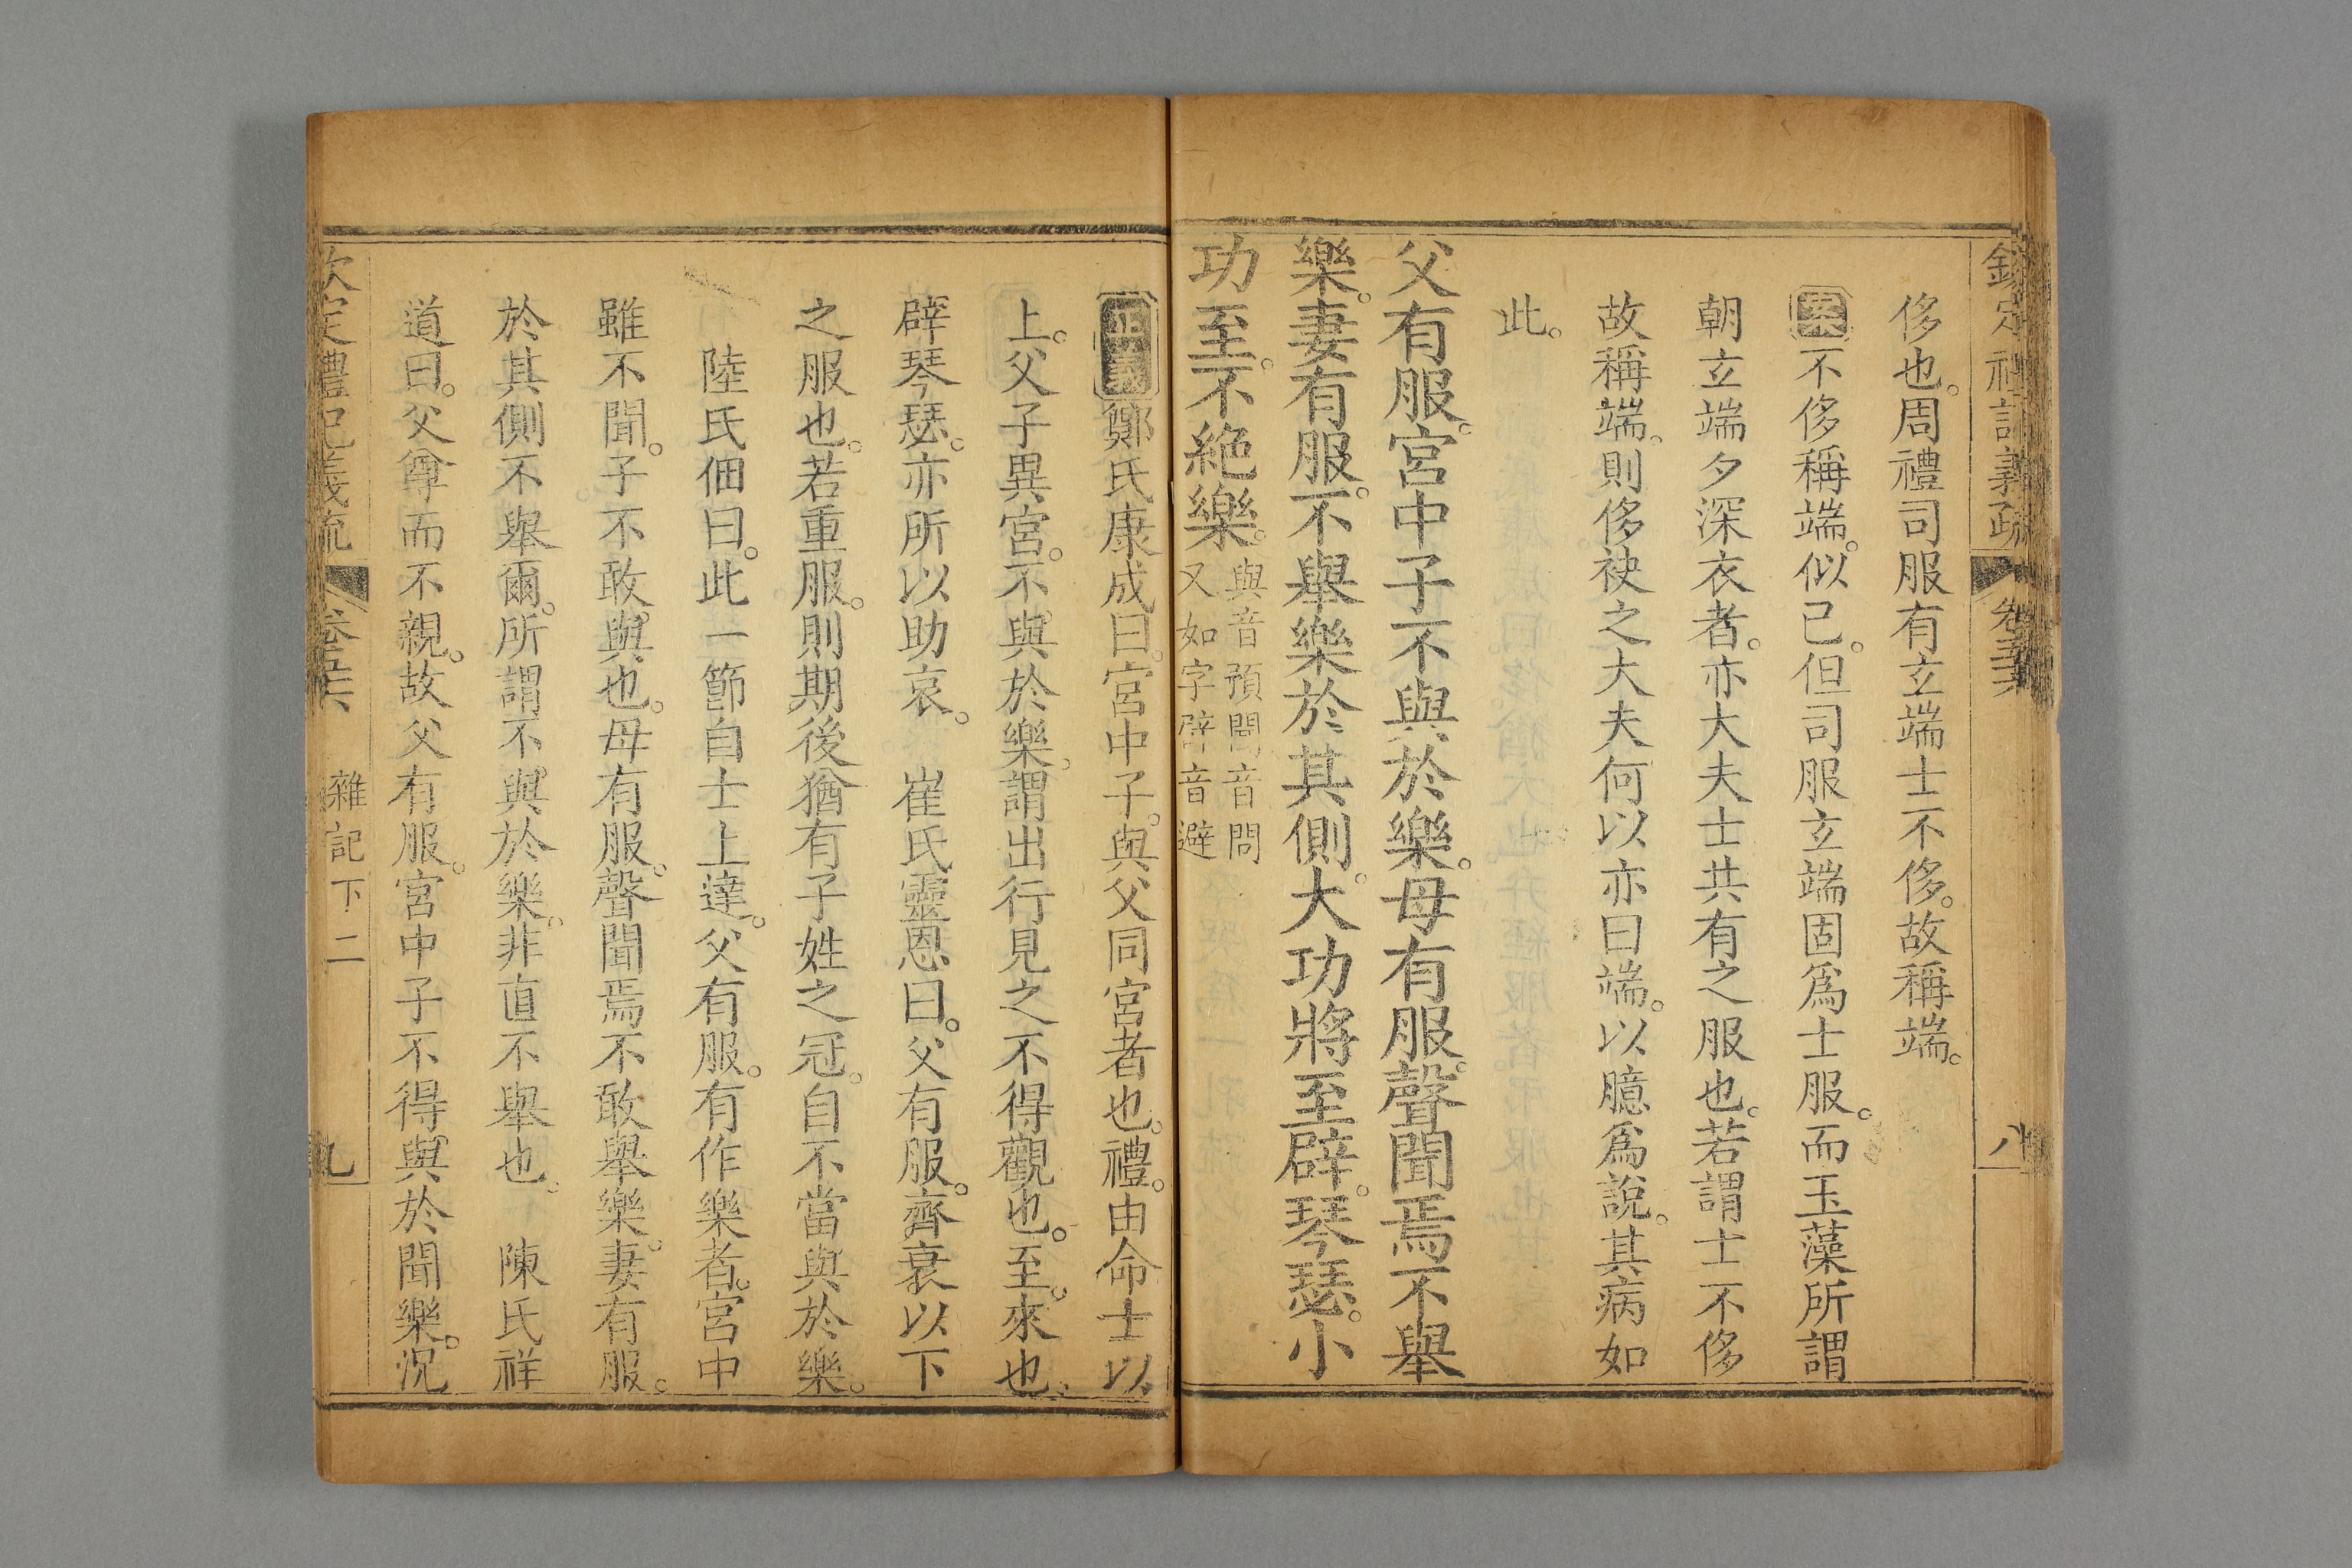 欽定禮記義疏 卷五十六 八
侈也。周禮司服有玄端士不侈。故稱端。
案不侈稱端。似已。但司服玄端固爲士服。而玉藻所謂
朝玄端夕深衣者。亦大夫士共有之服也。若謂士不侈
故稱端。則侈袂之大夫何以亦曰端。以臆爲說。其病如
此。
父有服。宮中子不與於樂。母有服。聲聞焉不舉
樂。妻有服。不舉樂於其側。大功將至。辟琴瑟。小
功至。不絶樂。與音預聞音問
又如字辟音避
正義鄭氏康成曰。宮中子。與父同宮者也。禮。由命士以
上。父子異宮。不與於樂。謂出行見之不得觀也。至。來也。
辟琴瑟。亦所以助哀。 崔氏靈恩曰。父有服。齊衰以下
之服也。若重服。則期後猶有子姓之冠。自不當與於樂。
陸氏佃曰。此一節自士上達。父有服。有作樂者。宮中
雖不聞。子不敢與也。母有服。聲聞焉不敢舉樂。妻有服。
於其側不舉爾。所謂不與於樂。非直不舉也。 陳氏祥
道曰。父尊而不親。故父有服。宮中子不得與於聞樂。況
欽定禮記義疏 卷五十六 雜記下二 九